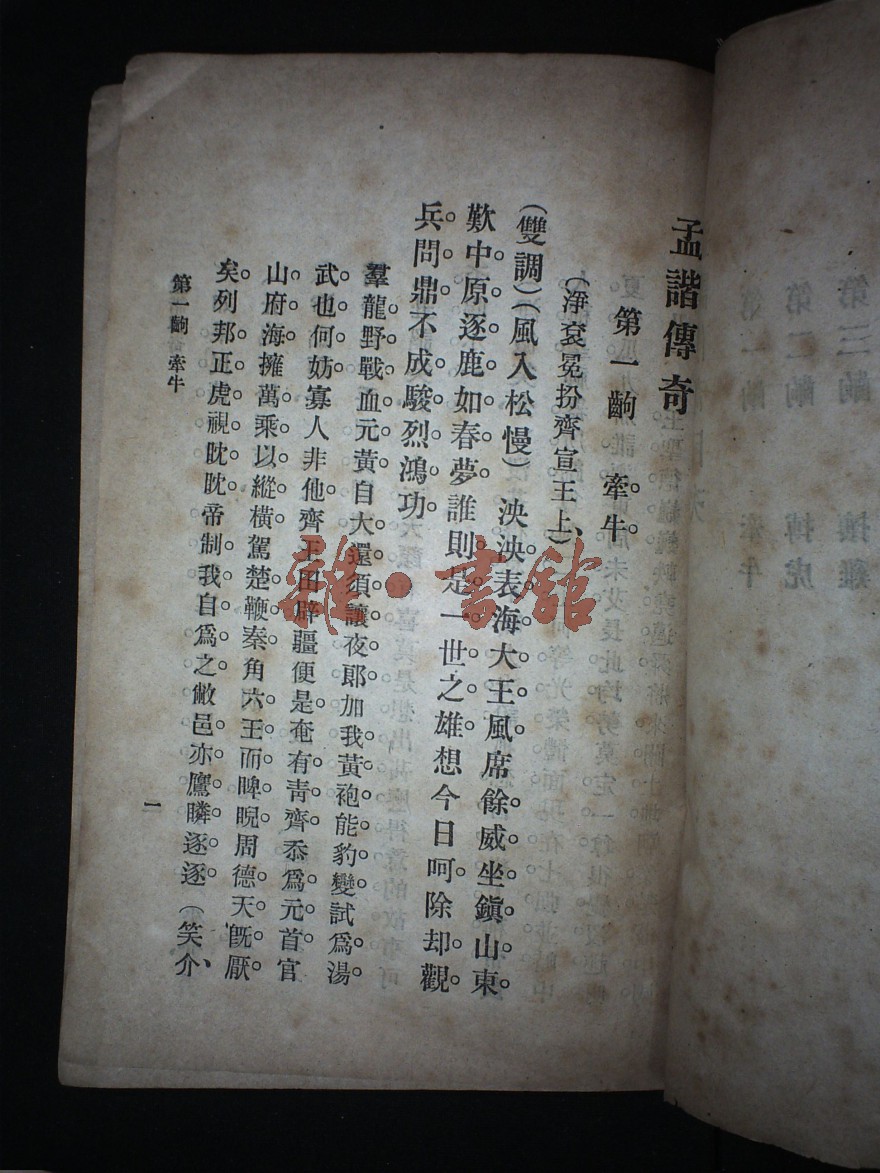 孟諧傳奇
第一齣 牽牛
（淨袞冕扮齊宣王上）
（雙調）（風入松慢）泱泱表海大王風。席餘威坐鎮山東。
歎中原逐鹿如春夢。誰則是一世之雄。想今日呵除却觀
兵問鼎。不成駿烈鴻功。
羣龍野戰血元黃。自大還須讓夜郞。加我黃袍能豹變。試爲湯
武也何妨。寡人非他。齊王田辟疆便是。奄有青齊。忝爲元首。官
山府海。擁萬乘以縱橫。駕楚鞭秦。角六王而睥睨。周德天旣厭
矣。列邦正虎視眈眈。帝制我自爲之。敝邑亦鷹瞵逐逐。（笑介
第一齣 牽牛
一
第一齣 牽牛
第二齣 搏虎
第三齣 攘雞
雜·書館